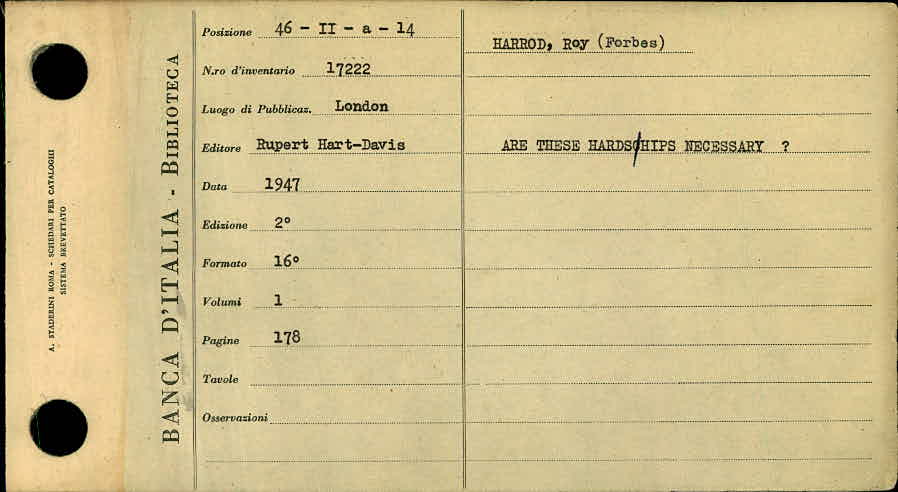 A. STADERINI ROMA - SCHEDARI PER CATALOGHI
SISTEMA BREVETTATO
BANCA D'ITALIA - BIBLIOTECA
Posizione 46 - II - a - 14
N.ro d'inventario 17222
Luogo di Pubblicaz. London
Editore Rupert Hart-Davis
Data 1947
Edizione 2°
Formato 16°
Volumi 1
Pagine 178
Tavole
Osservazioni
HARROD, Roy (Forbes)
ARE THESE HARDSHIPS NECESSARY ?